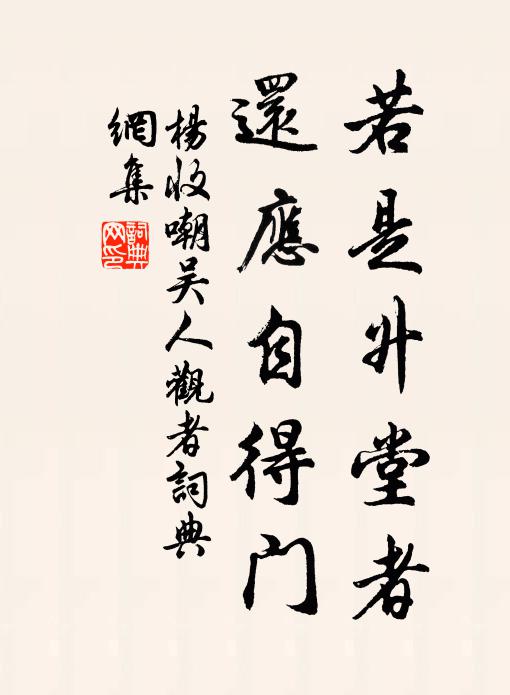 若是升堂者
還應自得門
楊收嘲吴人觀者詞典
網集
詞典
网印